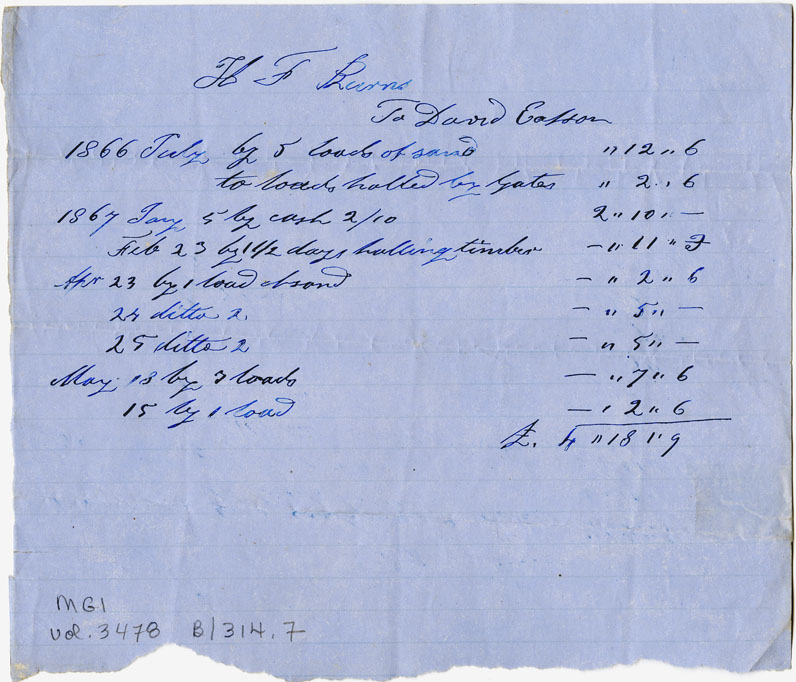 H F Burns
To David Easson
1866 July by 5 loads of sand " 12 " 6
to loads halled by Gates " 2 " 6
1867 Jany 5 by cash 2/10 2 " 10 " —
Feb 23 by 1 1/2 days halling timber — " 11 " 3
Apr 23 by 1 load of sand — " 2 " 6
24 ditto 2. — " 5 " —
25 ditto 2 — " 5 " —
May 13 by 3 loads — " 7 " 6
15 by 1 load — " 2 " 6
£. 4 " 18 " 9
MG1
vol. 3478 B/314.7